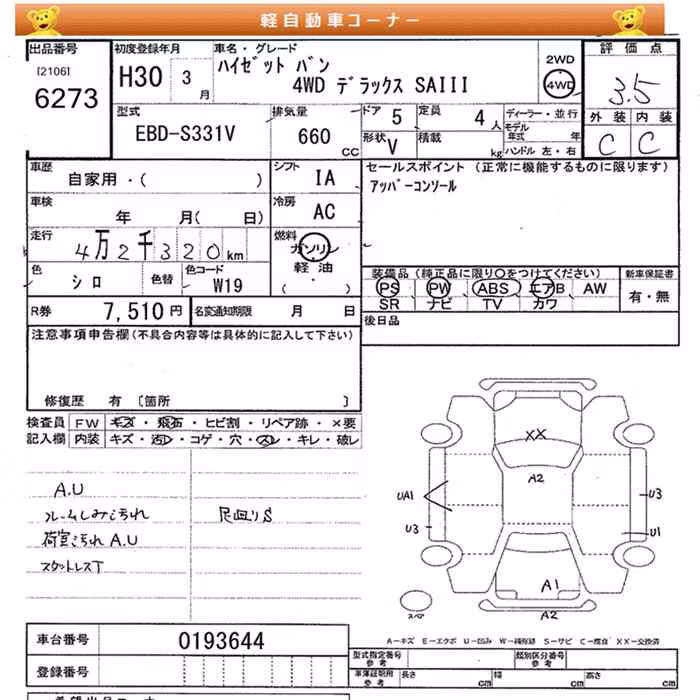 軽自動車コーナー
出品番号
[2106]
6273
初度登録年月
H30 3月
車名・グレード
ハイゼット バン
4WD デラックス SAIII
2WD
4WD
評価点
3.5
外装 内装
C C
型式
EBD-S331V
排気量
660 CC
ドア 5
定員 4人
形状 V
積載 kg
ディーラー・並行
モデル年式 年
ハンドル 左・右
車歴
自家用・( )
シフト IA
セールスポイント (正常に機能するものに限ります)
アッパーコンソール
車検
年 月( 日)
冷房 AC
走行
4万2千320km
燃料
ガソリン
軽油
( )
色 シロ
色替
色コード W19
装備品(純正品に限り○をつけてください)
PS PW ABS エアB AW
SR ナビ TV カワ
新車保証書
有・無
R券 7,510円
名変通知期限 月 日
後日品
注意事項申告欄(不具合内容等は具体的に記入して下さい)
修復歴 有 〔箇所 〕
検査員記入欄
FW キズ・飛石・ヒビ割・リペア跡・×要
内装 キズ・汚レ・コゲ・穴・スレ・キレ・破レ
A.U
フレームしみさぢれ
荷室汚れ A.U
スタットレスT
足廻りS
XX
A2
UA1
U3
U3
U1
A1
A2
スペア
A-キズ E-エクボ U-凹み W-補修跡 S-サビ C-腐食 XX-交換済
車台番号 0193644
登録番号
型式指定番号 参考
類別区分番号 参考
車庫証明用 参考
長さ cm
幅 cm
高さ cm
希望出品コーナー